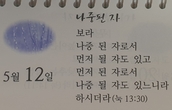 나중된 자
보라
나중 된 자로서
먼저 될 자도 있고
5월 12일
먼저 된 자로서
나중 될 자도 있느니라
하시더라 (눅 13:30)